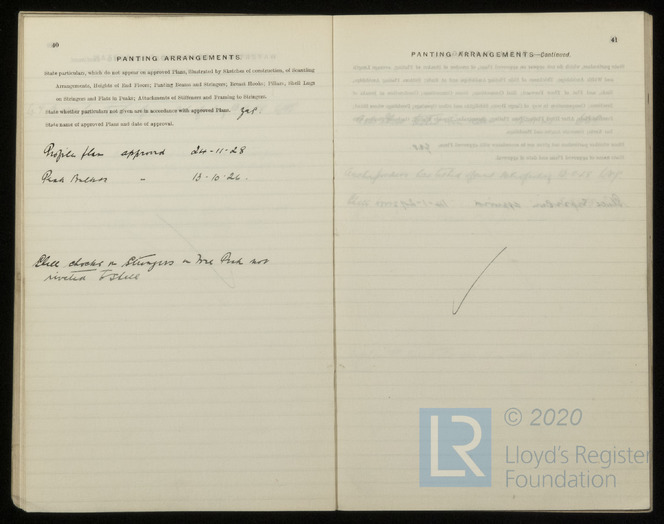 40
PANTING ARRANGEMENTS
State particulars, which do not appear on approved Plans, illustrated by Sketches of construction, of Scantling
Arrangements, Heights of End Floors; Panting Beams and Stringers; Breast Hooks; Pillars; Shell Lugs
on Stringers and Flats in Peaks; Attachments of Stiffeners and Framing to Stringers.
State whether particulars not given are in accordance with approved Plans. Yes.
State name of approved Plans and date of approval.
Profile plan approved 24-11-28
Peak Bulkhds " 13-10-26.
Shell chocks on Stringers in Fore Peak not
riveted to Shell
41
PANTING ARRANGEMENTS—Continued.
LR
© 2020
Lloyd's Register
Foundation